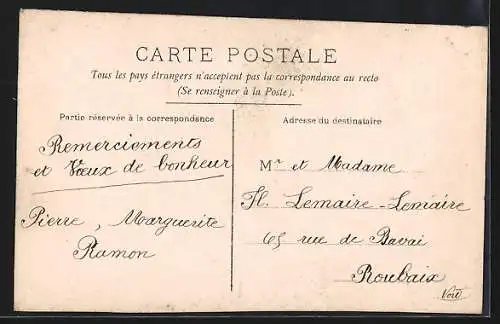 CARTE POSTALE
Tous les pays étrangers n'acceptent pas la correspondance au recto
(Se renseigner à la Poste).
Partie réservée à la correspondance
Adresse du destinataire
Remerciements
et Vœux de bonheur
Pierre, Marguerite
Ramon
Mr et Madame
Fl. Lemaire-Lemaire
65 rue de Bavai
Roubaix